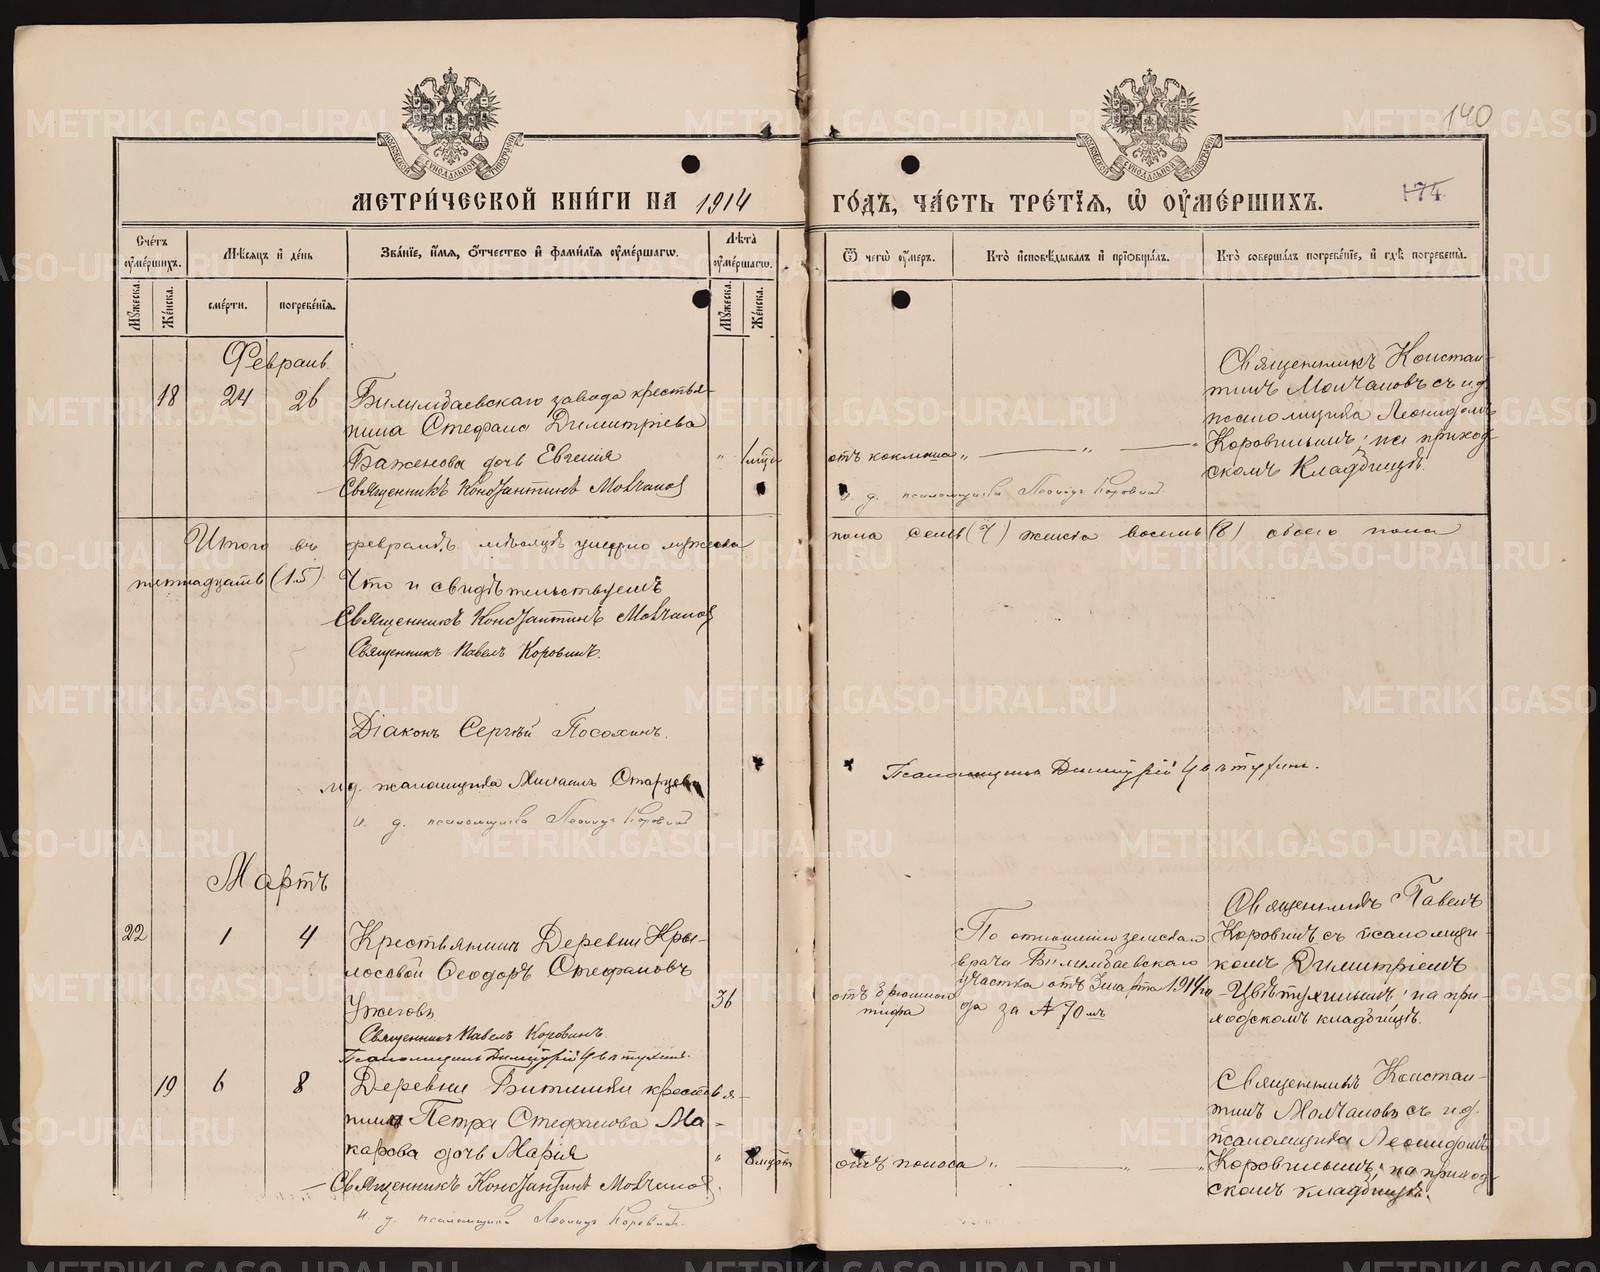 140
МЕТРИ́ЧЕСКОЙ КНИ́ГИ НА 1914 ГО́ДЪ, ЧА́СТЬ ТРЕ́ТІѦ, Ѡ҆ ОУ҆МЕ́РШИХЪ.
174
Сче́тъ оу҆ме́ршихъ.
Мѣ́сѧцъ и҆ де́нь
Зва́нїе, и҆́мѧ, ѻ҆́тчество и҆ фами́лїѧ оу҆ме́ршагѡ.
Лѣ́та оу҆ме́ршагѡ.
Ѿ чегѡ̀ оу҆́меръ.
Кто̀ и҆сповѣ́дывалъ и҆ прїѡбща́лъ.
Кто̀ соверша́лъ погребе́нїе, и҆ гдѣ̀ погребены̀.
Мꙋ́жеска.
Же́нска.
сме́рти.
погребе́нїѧ.
Мꙋ́жеска.
Же́нска.
Февраль
18 24 26
Билимбаевскаго завода крестья-
нина Стефана Димитріева
Баженова дочь Евгенія
" 1 мѣс
Священникъ Константинъ Молчановъ
отъ коклюша " — " — "
и. д. псаломщика Леонидъ Коровинъ
Священникъ Констан-
тинъ Молчановъ съ и. д.
псаломщика Леонидомъ
Коровинымъ; на приход-
скомъ кладбищѣ.
Итого въ февралѣ мѣсяцѣ умерло мужеска пола семь (7) женска восемь (8) обоего пола
пятнадцать (15) Что и свидѣтельствуемъ
Священникъ Константинъ Молчановъ
Священникъ Павелъ Коровинъ.
Діаконъ Сергѣй Посохинъ.
и. д. псаломщика Михаилъ Старцевъ
Псаломщикъ Димитрій Цвѣтухинъ.
и. д. псаломщика Леонидъ Коровинъ
Мартъ
22 1 4
Крестьянинъ Деревни Кры-
лосовой Ѳеодоръ Стефановъ
Ужеговъ
36
Священникъ Павелъ Коровинъ.
Псаломщикъ Димитрій Цвѣтухинъ.
отъ брюшного
тифа
По отношенію земскаго
врача Билимбаевскаго
участка отъ 3 марта 1914 го
да за № 70 мъ
Священникъ Павелъ
Коровинъ съ псаломщи-
комъ Димитріемъ
Цвѣтухинымъ; на при-
ходскомъ кладбищѣ.
19 6 8
Деревни Битимки крестья-
нина Петра Стефанова Ма-
карова дочь Марія
" 8 мѣсяц
Священникъ Константинъ Молчановъ.
и. д. псаломщика Леонидъ Коровинъ.
отъ поноса " — " — "
Священникъ Констан-
тинъ Молчановъ съ и. д.
псаломщика Леонидомъ
Коровинымъ; на приход-
скомъ кладбищѣ.
METRIKI.GASO-URAL.RU